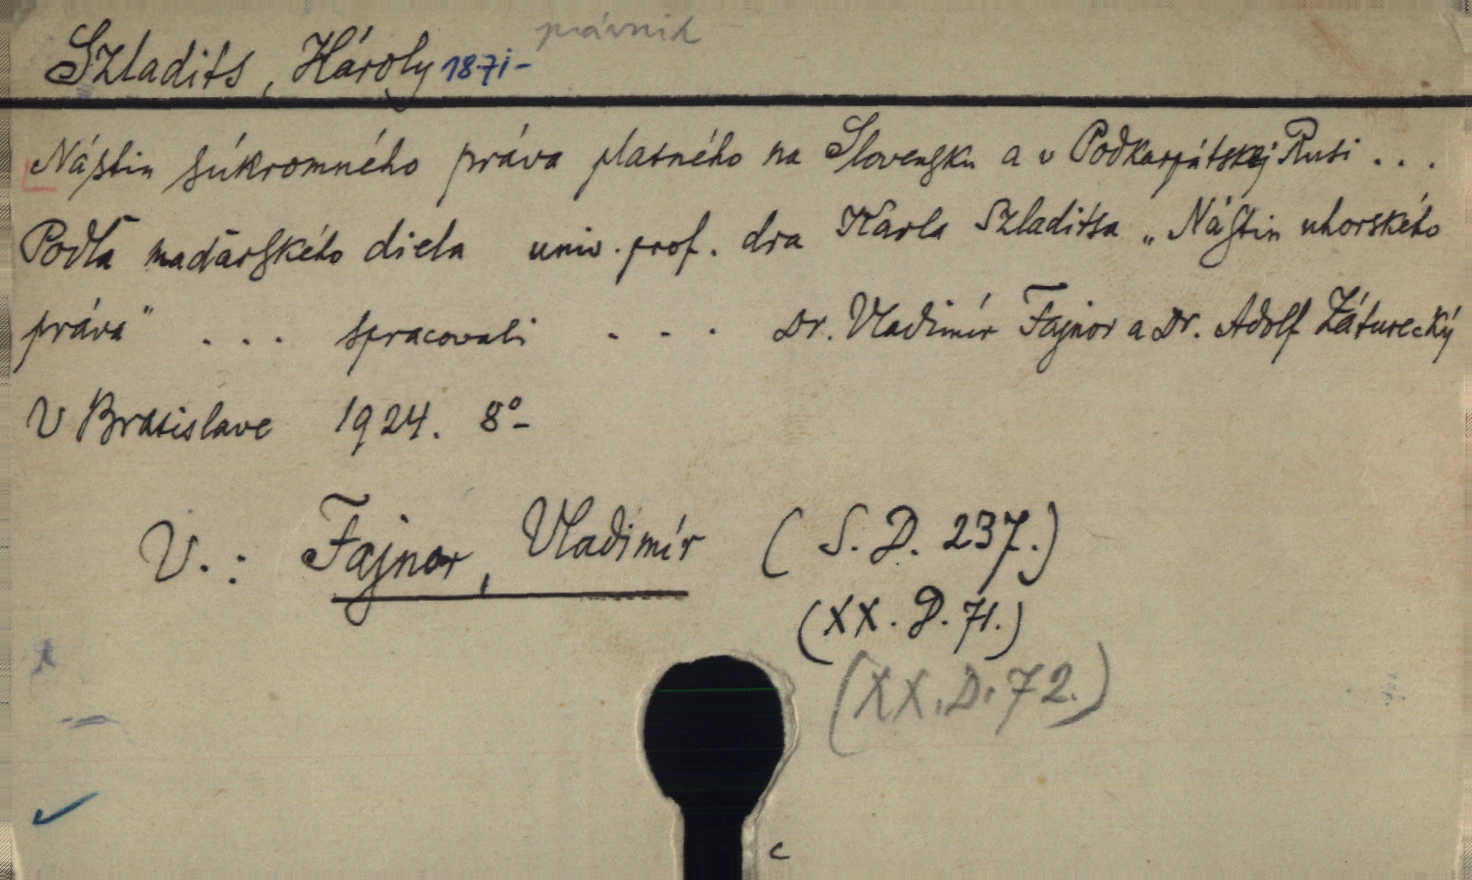 právnik
Szladits, Károly 1871-
Nástin súkromného práva platného na Slovensku a v Podkarpátskej Rusi ...
Podľa maďarského diela univ. prof. dra Karla Szladitsa „Nástin uhorského
práva" ... spracovali ... Dr. Vladimír Fajnor a Dr. Adolf Záturecký
V Bratislave 1924. 8°-
V.: Fajnor, Vladimír (S. D. 237.)
(XX. D. 71.)
(XX. D. 72.)
c